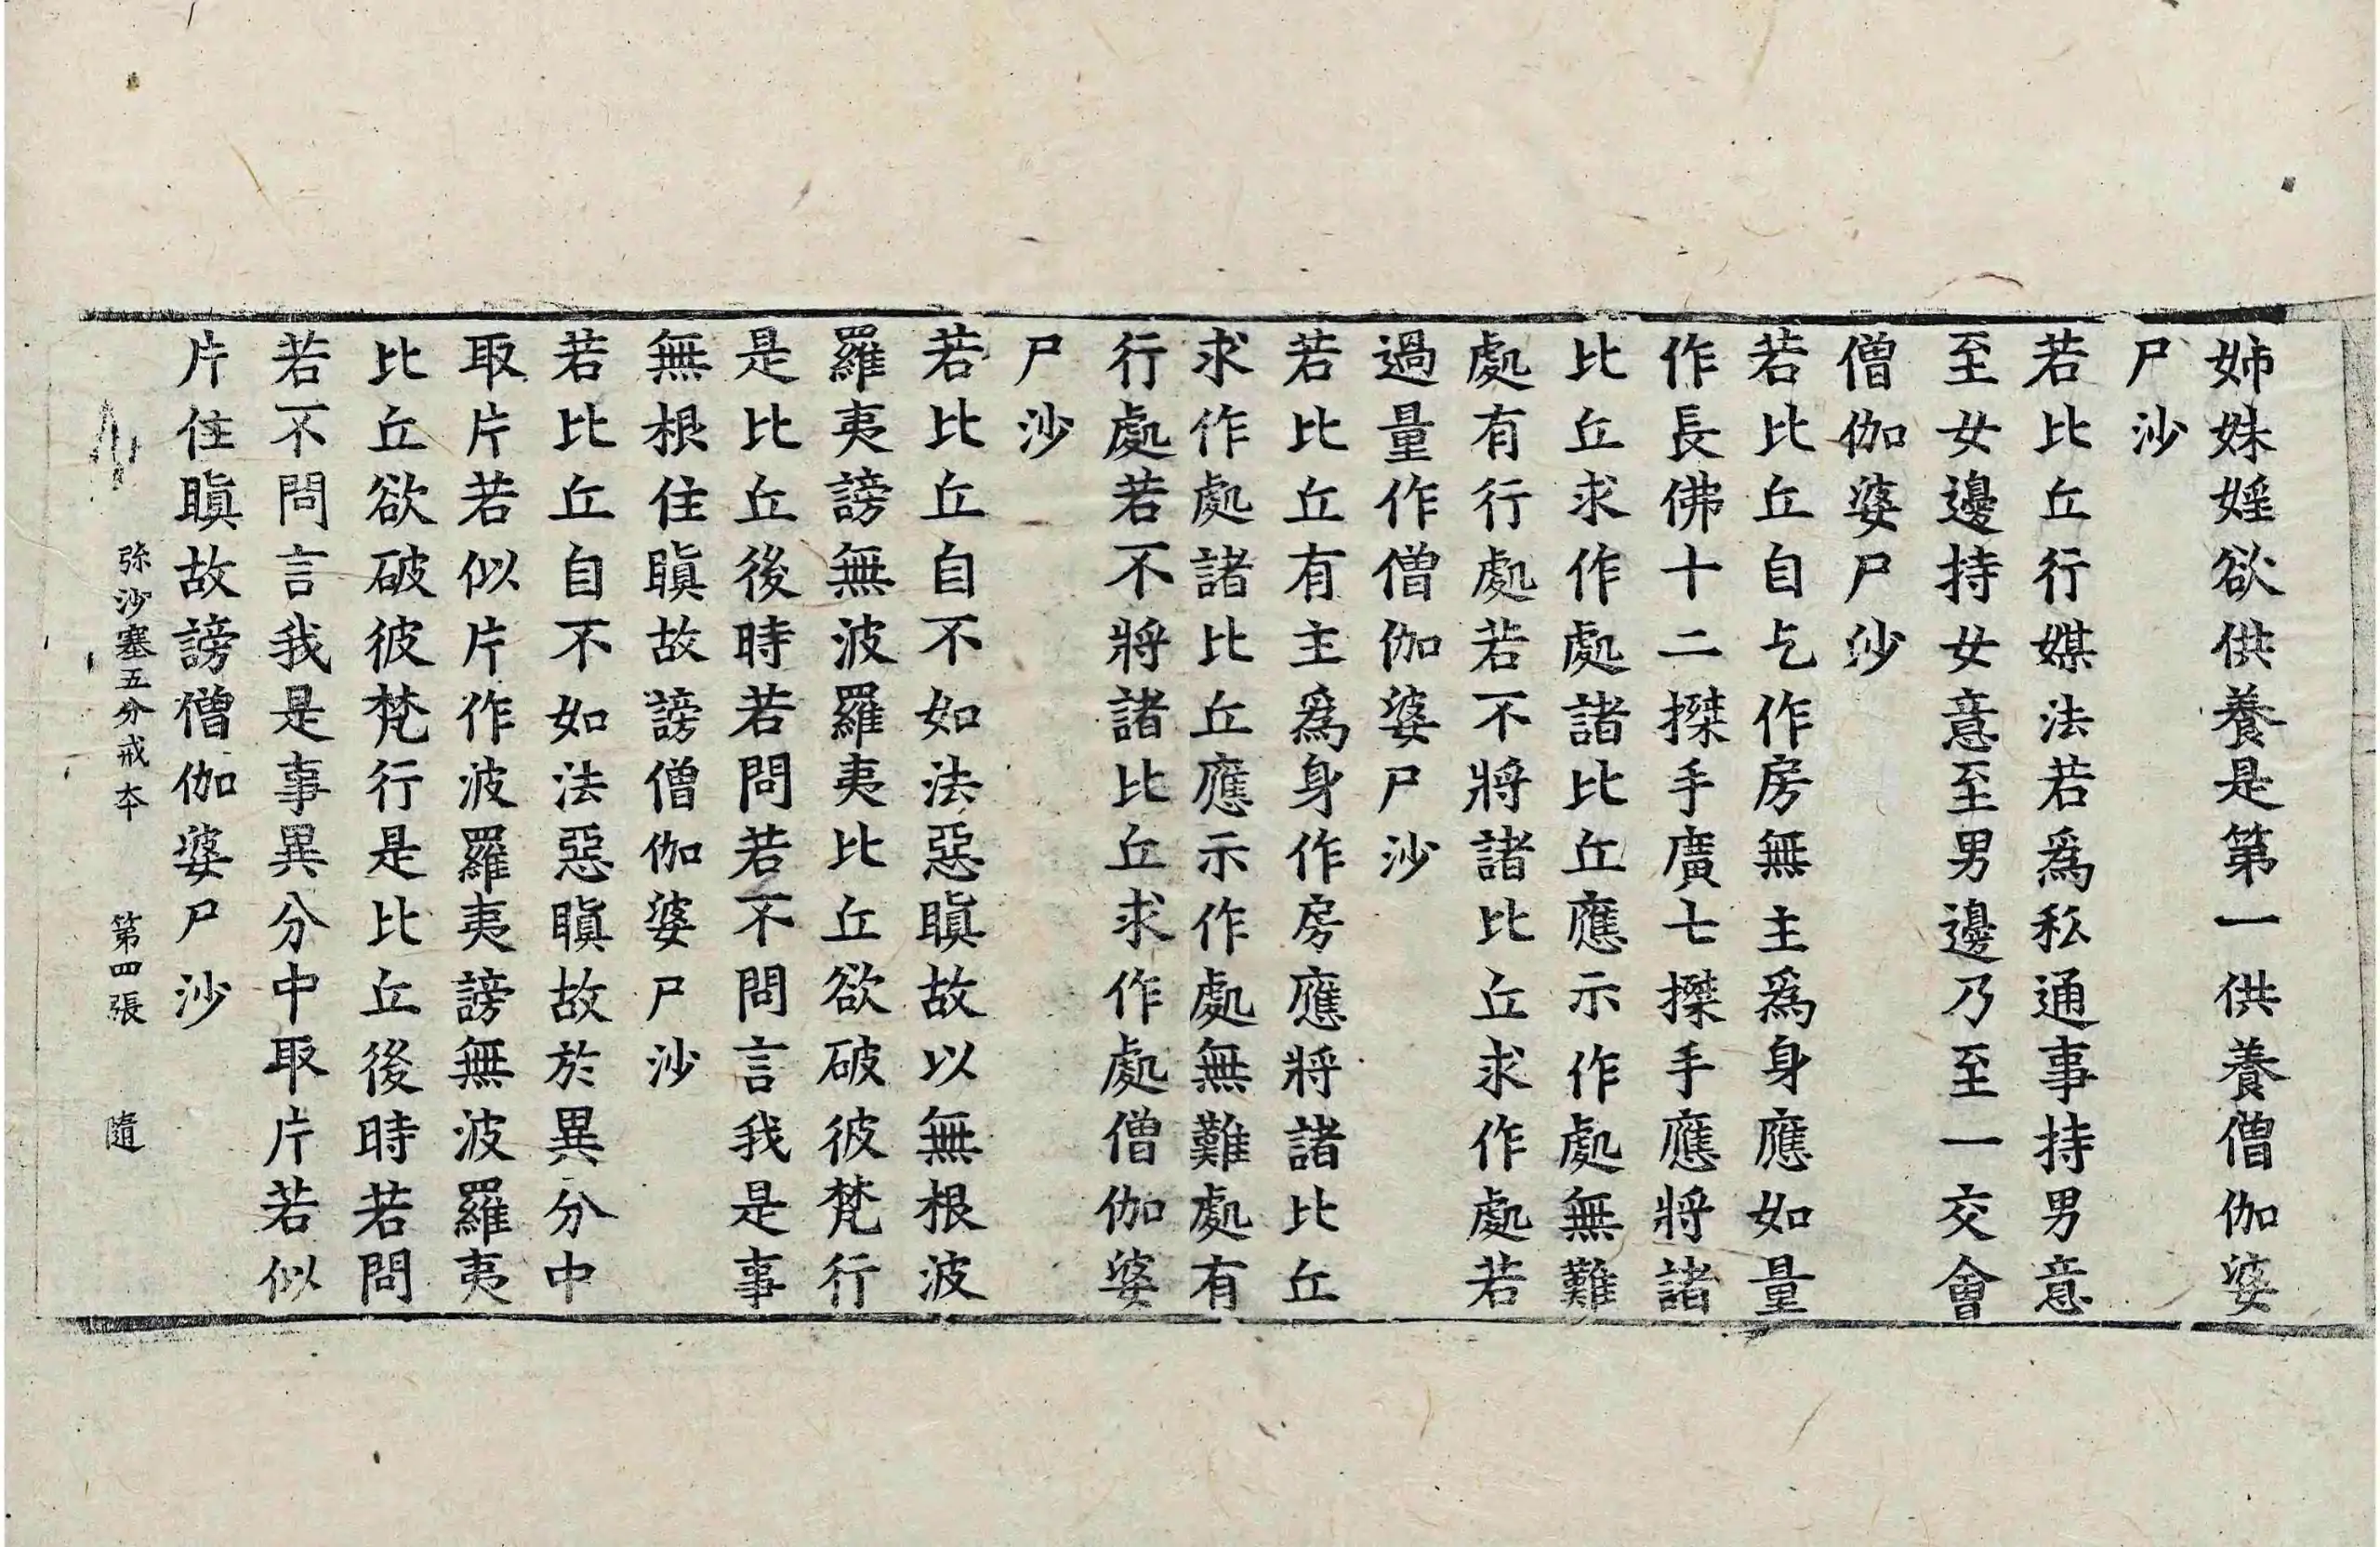 姊妹婬欲供養是第一供養僧伽婆
尸沙
若比丘行媒法若爲私通事持男意
至女邊持女意至男邊乃至一交會
僧伽婆尸沙
若比丘自乞作房無主爲身應如量
作長佛十二搩手廣七搩手應將諸
比丘求作處諸比丘應示作處無難
處有行處若不將諸比丘求作處若
過量作僧伽婆尸沙
若比丘有主爲身作房應將諸比丘
求作處諸比丘應示作處無難處有
行處若不將諸比丘求作處僧伽婆
尸沙
若比丘自不如法惡瞋故以無根波
羅夷謗無波羅夷比丘欲破彼梵行
是比丘後時若問若不問言我是事
無根住瞋故謗僧伽婆尸沙
若比丘自不如法惡瞋故於異分中
取片若似片作波羅夷謗無波羅夷
比丘欲破彼梵行是比丘後時若問
若不問言我是事異分中取片若似
片住瞋故謗僧伽婆尸沙
弥沙塞五分戒夲 第四張 隨